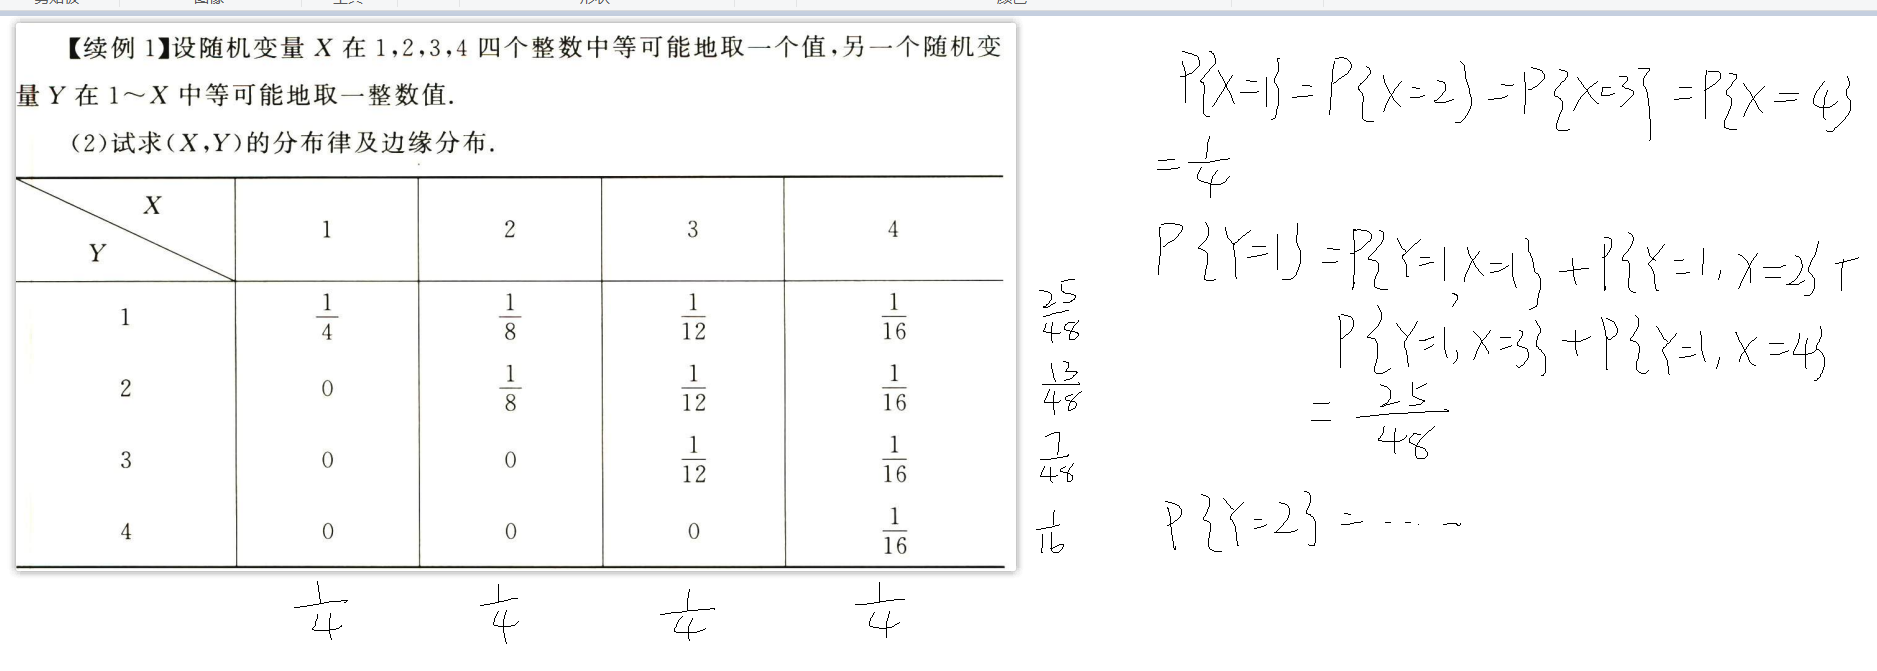 【续例 1】设随机变量 X 在 1,2,3,4 四个整数中等可能地取一个值,另一个随机变
量 Y 在 1～X 中等可能地取一整数值.
(2)试求(X,Y)的分布律及边缘分布.
X
Y
1 2 3 4
1 1/4 1/8 1/12 1/16 25/48
2 0 1/8 1/12 1/16 13/48
3 0 0 1/12 1/16 7/48
4 0 0 0 1/16 1/16
1/4 1/4 1/4 1/4
P{X=1}=P{X=2}=P{X=3}=P{X=4}
=1/4
P{Y=1}=P{Y=1,X=1}+P{Y=1,X=2}+
P{Y=1,X=3}+P{Y=1,X=4}
=25/48
P{Y=2}=……